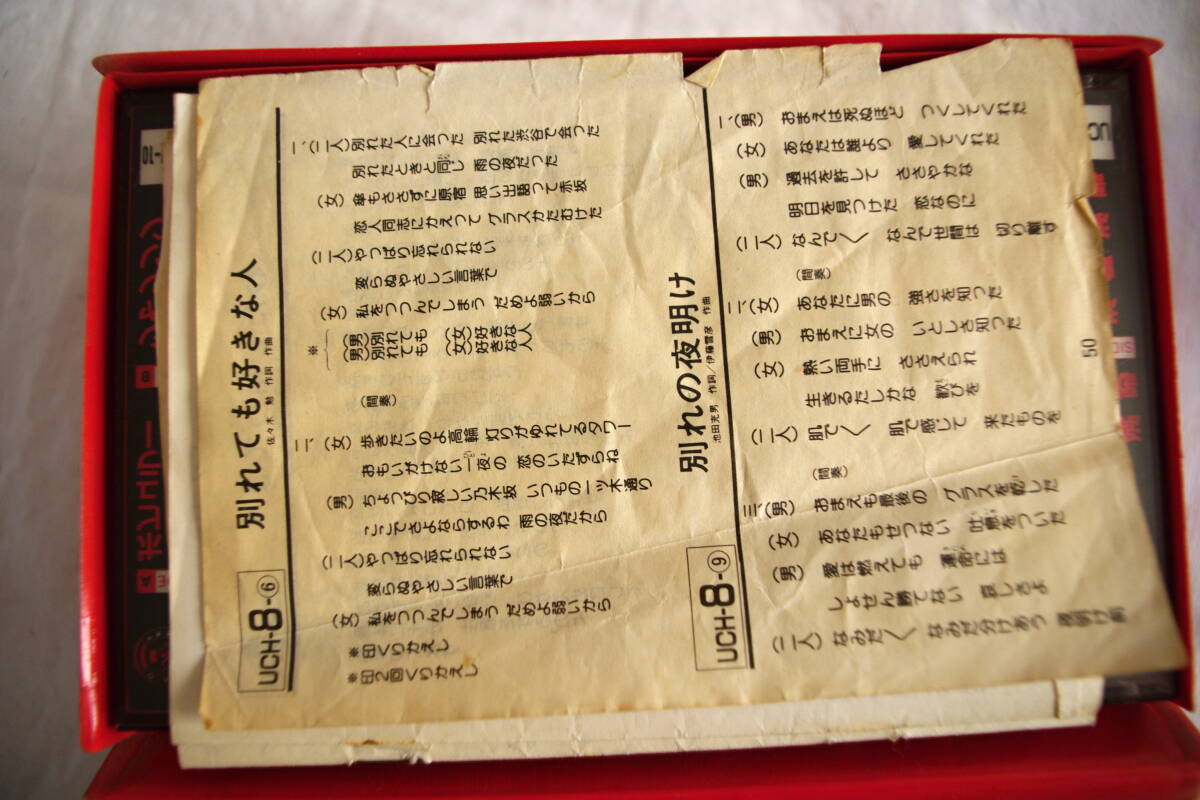 UCH-8-⑥
別れても好きな人
佐々木 勉 作詞 作曲
一、(二人)別れた人に会った 別れた渋谷で会った
別れたときと同じ 雨の夜だった
(女) 傘もささずに原宿 思い出語って赤坂
恋人同志にかえって グラスかたむけた
(二人)やっぱり忘れられない
変らぬやさしい言葉で
(女) 私をつつんでしまう だめよ弱いから
※
(男)別れても (女)好きな人
(男)別れても (女)好きな人
(間奏)
二、(女) 歩きたいのよ高輪 灯りがゆれてるタワー
おもいがけない一夜の 恋のいたずらね
(男) ちょっぴり寂しい乃木坂 いつもの一ツ木通り
ここでさよならするわ 雨の夜だから
(二人)やっぱり忘れられない
変らぬやさしい言葉で
(女) 私をつつんでしまう だめよ弱いから
※印くりかえし
※印2回くりかえし
UCH-8-⑨
別れの夜明け
池田充男 作詞/伊藤雪彦 作曲
一、(男) おまえは死ぬほど つくしてくれた
(女) あなたは誰より 愛してくれた
(男) 過去を許して ささやかな
明日を見つけた 恋なのに
(二人) なんで〱 なんで世間は 切り離す
(間奏)
二、(女) あなたに男の 強さを知った
(男) おまえに女の いとしさ知った
(女) 熱い両手に ささえられ
生きるたしかな 歓びを
(二人) 肌で〱 肌で感じて 来たものを
(間奏)
三、(男) おまえも最後の グラスを乾した
(女) あなたもせつない 吐息をついた
(男) 愛は燃えても 運命には
しょせん勝てない 哀しさよ
(二人) なみだ〱 なみだ分けあう 夜明け前
50